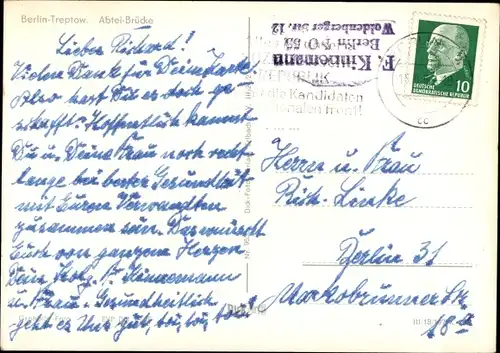 Berlin-Treptow. Abtei-Brücke
Lieber Richard!
Vielen Dank für Deine Karte.
Also hast Du es doch ge-
schafft. Hoffentlich kannst
Du u. Deine Frau noch recht
lange bei bester Gesundheit
mit Euren Verwandten
zusammen sein. Das wünscht
Euch von ganzem Herzen
Dein
u. Frau. Gesundheitlich
geht es uns gut, toi, toi, toi!
F. Kinnemann
Berlin NO 55
Woldenberger Str. 12
REPUBLIK
die Kandidaten
nalen Front!
10
DEUTSCHE
DEMOKRATISCHE REPUBLIK
Herrn u. Frau
Rich. Linke
Berlin 31
Markobrunner Str.
18a